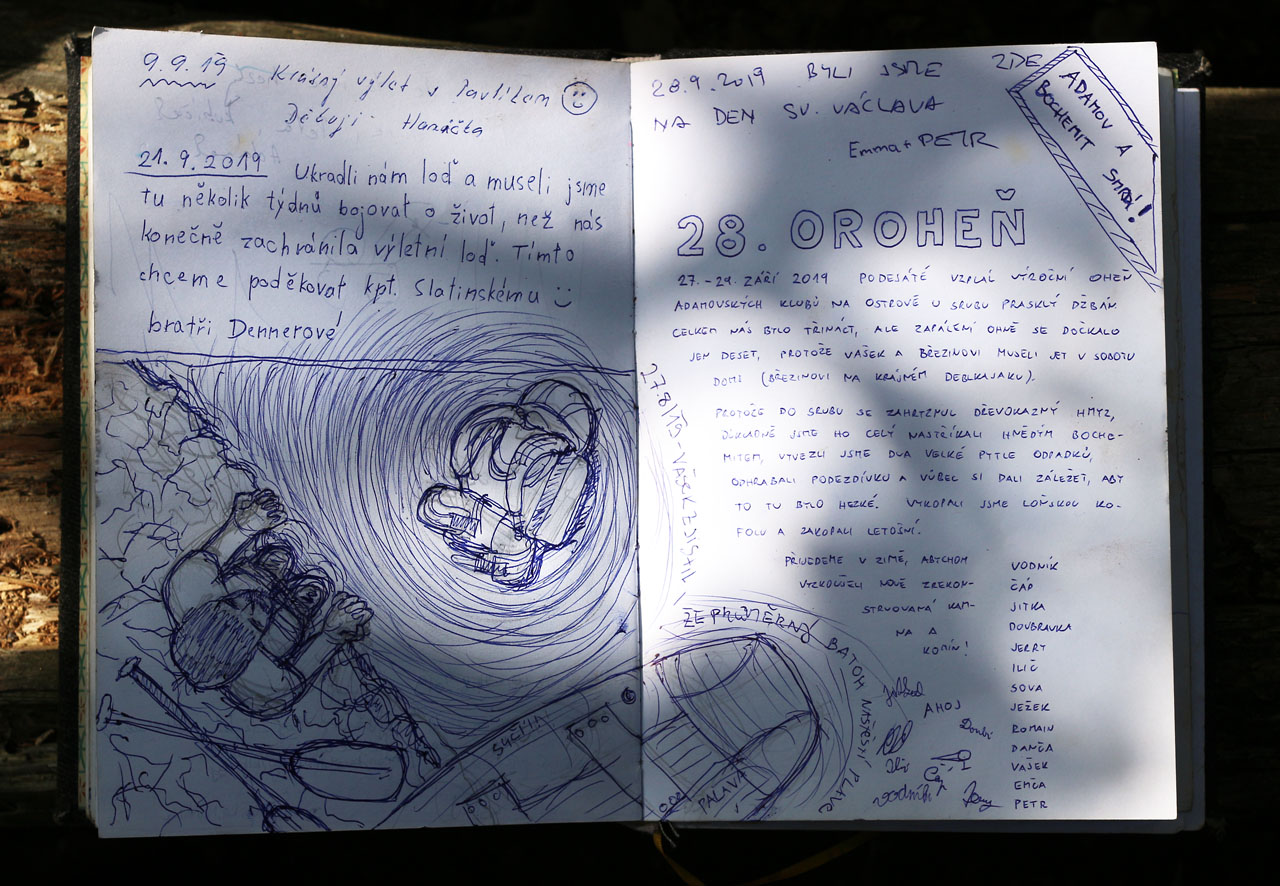 9.9.19 Krásný výlet s Pavlíkem
Děkuji Haničta
21.9.2019 Ukradli nám loď a museli jsme
tu několik týdnů bojovat o život, než nás
konečně zachránila výletní loď. Tímto
chceme poděkovat kpt. Slatinskému
bratři Dennerové!
SUCHÝ
28.9.2019 BYLI JSME ZDE
NA DEN SV. VÁCLAVA
Emma + PETR
ADAMOV A
BOCHEMIT
SMRDÍ!
28. OROHEŇ
27.-29. ZÁŘÍ 2019 PODESÁTÉ VZPLÁL VÝROČNÍ OHEŇ
ADAMOVSKÝCH KLUBŮ NA OSTROVĚ U SRUBU PRASKLÝ DŽBÁN.
CELKEM NÁS BYLO TŘINÁCT, ALE ZAPÁLENÍ OHNĚ SE DOČKALO
JEN DESET, PROTOŽE VAŠEK A BŘEZINOVI MUSELI JET V SOBOTU
DOMŮ (BŘEZINOVI NA KRÁSNÉM DEBLKAJAKU).
PROTOŽE DO SRUBU SE ZAHRYZNUL DŘEVOKAZNÝ HMYZ,
DŮKLADNĚ JSME HO CELÝ NASTŘÍKALI HNĚDÝM BOCHE-
MITEM, VYVEZLI JSME DVA VELKÉ PYTLE ODPADKŮ,
ODHRABALI PODEZDÍVKU A VŮBEC SI DALI ZÁLEŽET, ABY
TO TU BYLO HEZKÉ. VYKOPALI JSME LOŇSKOU KO-
FOLU A ZAKOPALI LETOŠNÍ.
PŘIJEDEME V ZIMĚ, ABYCHOM
VYZKOUŠELI NOVĚ ZREKON-
STRUOVANÁ KAM-
NA A
KOMÍN!
AHOJ
VODNÍK
ČÁP
JITKA
DOUBRAVKA
JERRY
ILIČ
SOVA
JEŽEK
ROMAIN
DANČA
VAŠEK
EMČA
PETR
27.8/19 - VAŠEK ZJISTIL,
ŽE PRŮMĚRNÝ
BATOH NAŠTĚSTÍ PLAVE
PALAVA
Vodník
Jerry